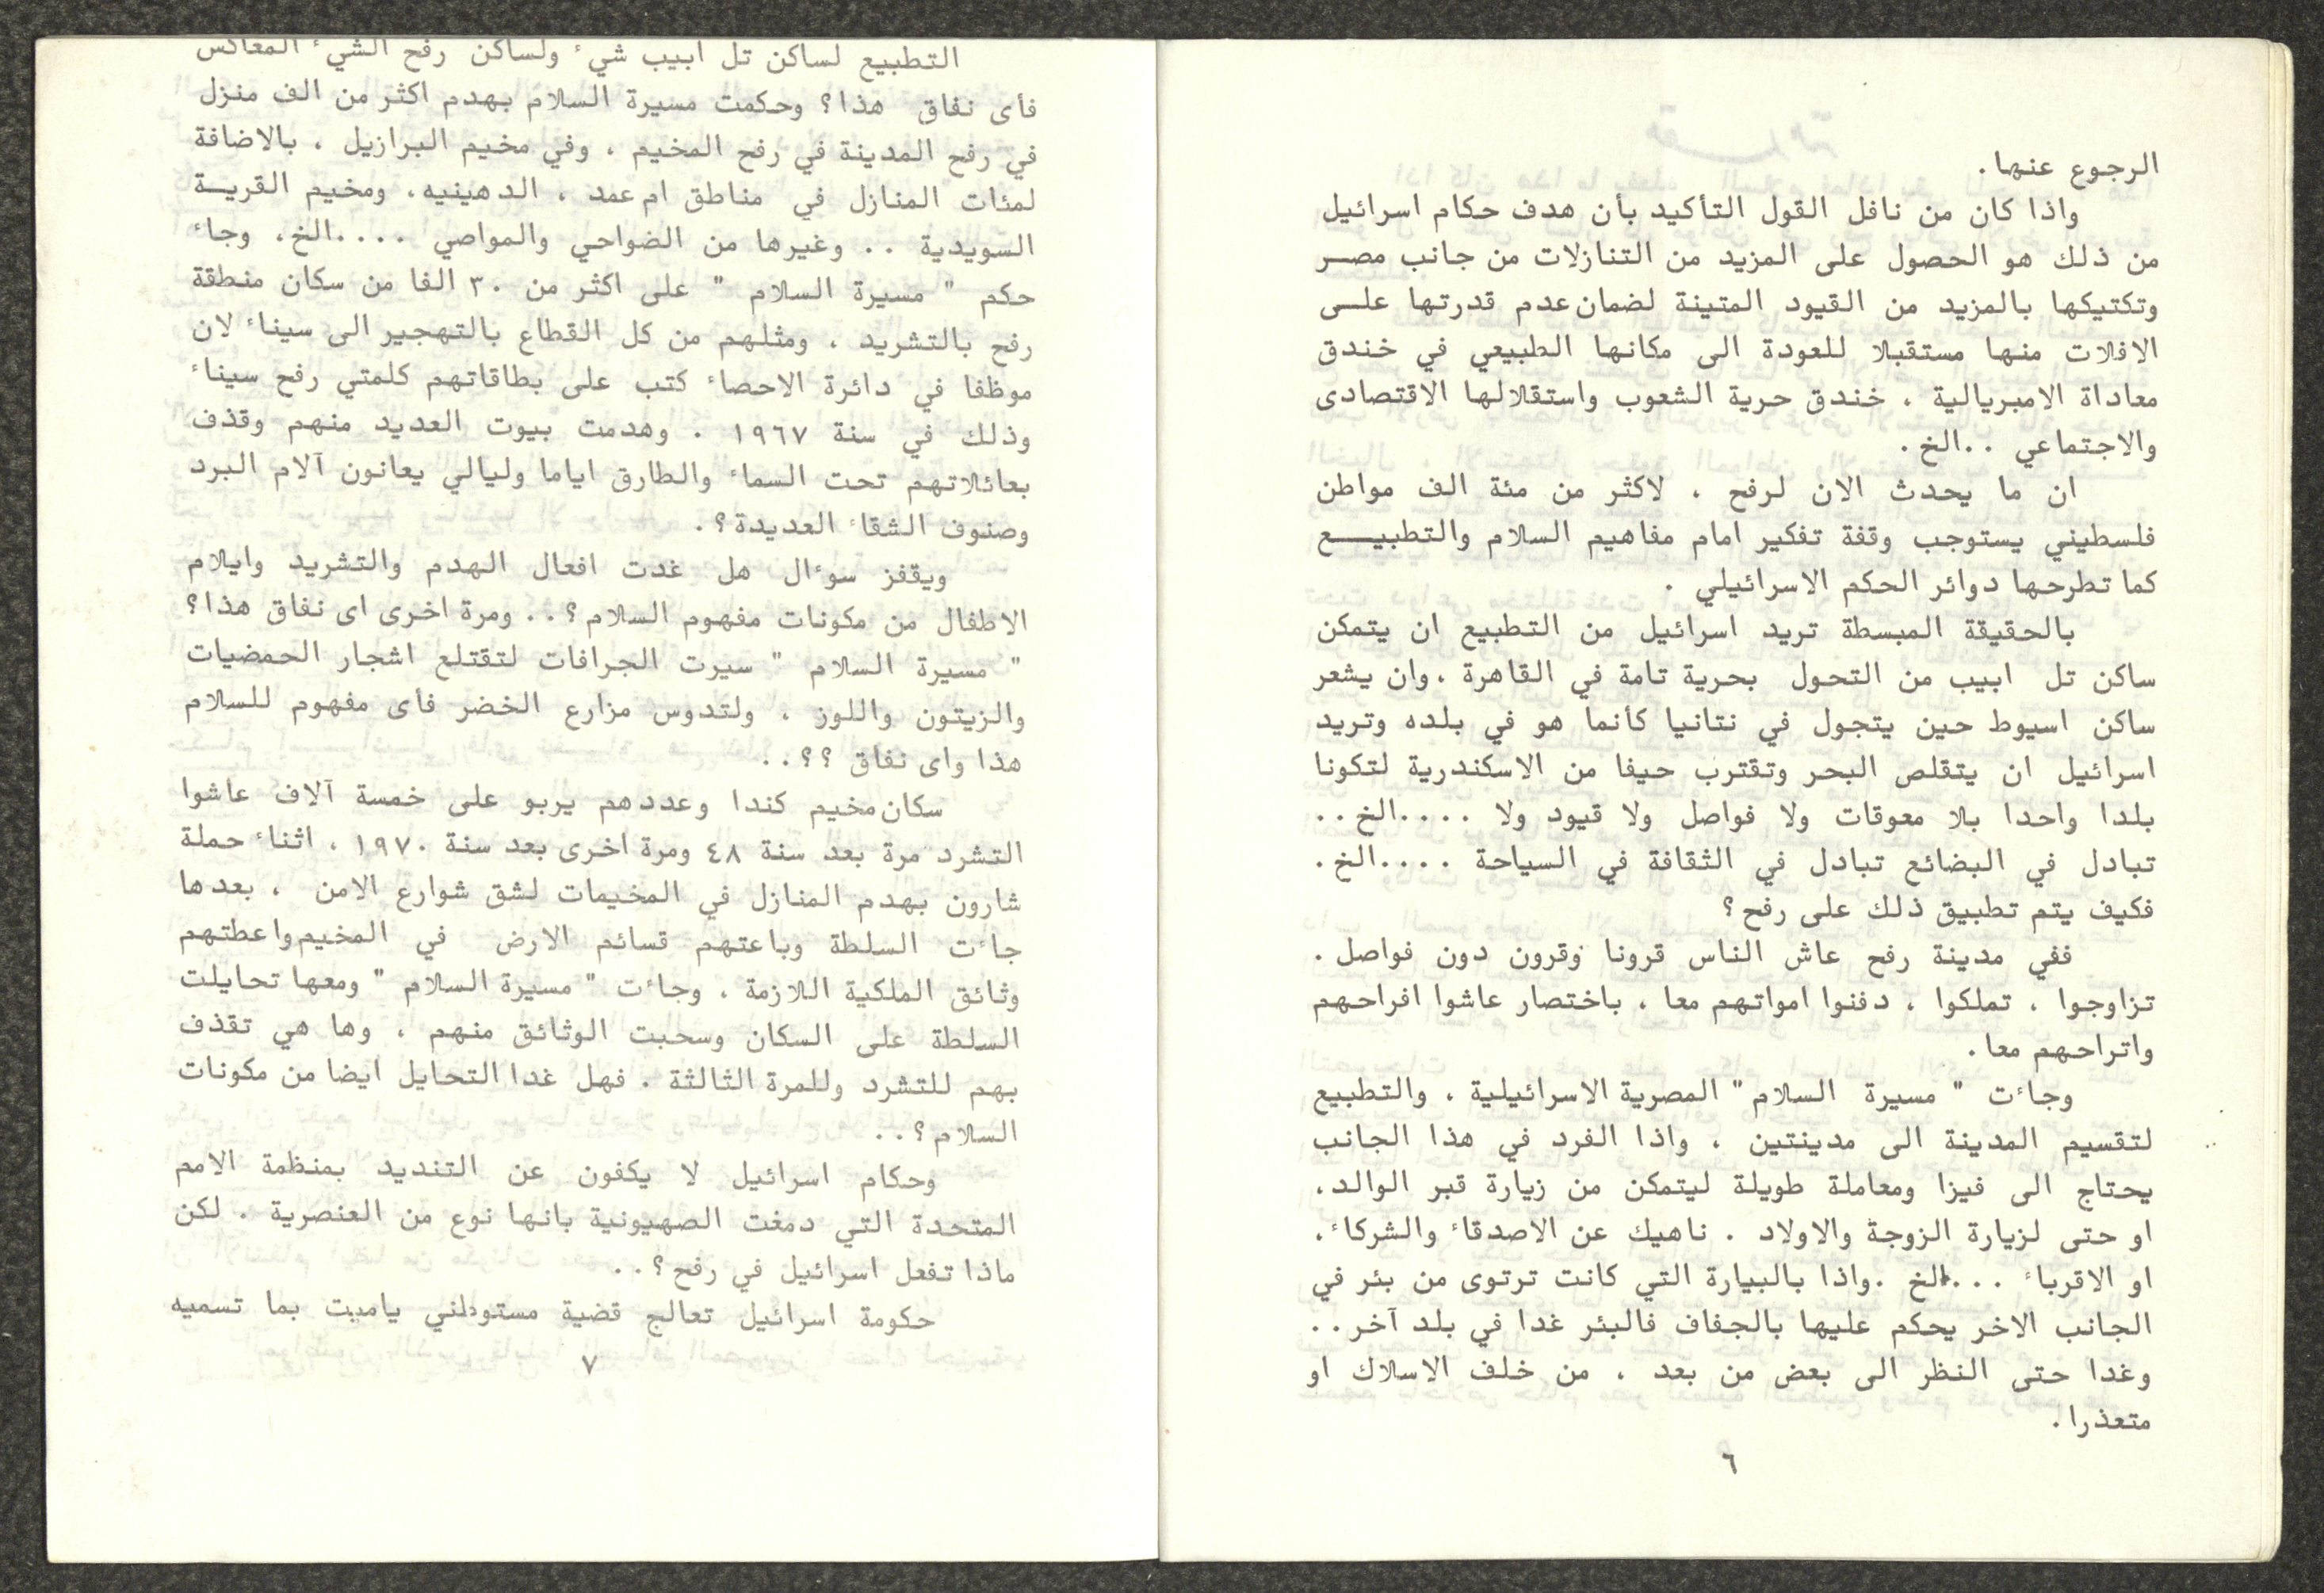 الرجوع عنها.
واذا كان من نافل القول التأكيد بأن هدف حكام اسرائيل
من ذلك هو الحصول على المزيد من التنازلات من جانب مصـر
وتكتيكها بالمزيد من القيود المتينة لضمان عدم قدرتها علـى
الافلات منها مستقبلا للعودة الى مكانها الطبيعي في خندق
معاداة الامبريالية ، خندق حرية الشعوب واستقلالها الاقتصادى
والاجتماعي ..الخ .
ان ما يحدث الان لرفح ، لاكثر من مئة الف مواطن
فلسطيني يستوجب وقفة تفكير امام مفاهيم السلام والتطبيــع
كما تطرحها دوائر الحكم الاسرائيلي .
بالحقيقة المبسطة تريد اسرائيل من التطبيع ان يتمكن
ساكن تل ابيب من التحول بحرية تامة في القاهرة ،وان يشعر
ساكن اسيوط حين يتجول في نتانيا كأنما هو في بلده وتريد
اسرائيل ان يتقلص البحر وتقترب حيفا من الاسكندرية لتكونا
بلدا واحدا بلا معوقات ولا فواصل ولا قيود ولا ....الخ..
تبادل في البضائع تبادل في الثقافة في السياحة ....الخ.
فكيف يتم تطبيق ذلك على رفح؟
ففي مدينة رفح عاش الناس قرونا وقرون دون فواصل .
تزاوجوا ، تملكوا ، دفنوا امواتهم معا ، باختصار عاشوا افراحهم
واتراحهم معا.
وجاءت " مسيرة السلام" المصرية الاسرائيلية ، والتطبيع
لتقسيم المدينة الى مدينتين ، واذا الفرد في هذا الجانب
يحتاج الى فيزا ومعاملة طويلة ليتمكن من زيارة قبر الوالد،
او حتى لزيارة الزوجة والاولاد . ناهيك عن الاصدقاء والشركاء،
او الاقرباء ...الخ .واذا بالبيارة التي كانت ترتوى من بئر في
الجانب الاخر يحكم عليها بالجفاف فالبئر غدا في بلد آخر..
وغدا حتى النظر الى بعض من بعد ، من خلف الاسلاك او
متعذرا.
٦
التطبيع لساكن تل ابيب شيء ولساكن رفح الشيء المعاكس
فأى نفاق هذا؟ وحكمت مسيرة السلام بهدم اكثر من الف منزل
في رفح المدينة في رفح المخيم ، وفي مخيم البرازيل ، بالاضافة
لمئات المنازل في مناطق ام عمد ، الدهينيه، ومخيم القريــة
السويدية .. وغيرها من الضواحي والمواصي ....الخ، وجاء
حكم " مسيرة السلام " على اكثر من ٣٠ الفا من سكان منطقة
رفح بالتشريد ، ومثلهم من كل القطاع بالتهجير الى سيناء لان
موظفا في دائرة الاحصاء كتب على بطاقاتهم كلمتي رفح سيناء
وذلك في سنة ١٩٦٧ . وهدمت بيوت العديد منهم وقذف
بعائلاتهم تحت السماء والطارق اياما وليالي يعانون آلام البرد
وصنوف الشقاء العديدة؟.
ويقفز سوءال هل غدت افعال الهدم والتشريد وايلام
الاطفال من مكونات مفهوم السلام؟.. ومرة اخرى اى نفاق هذا؟
" مسيرة السلام " سيرت الجرافات لتقتلع اشجار الحمضيات
والزيتون واللوز ، ولتدوس مزارع الخضر فأى مفهوم للسلام
هذا واى نفاق ؟؟..
سكان مخيم كندا وعددهم يربو على خمسة آلاف عاشوا
التشرد مرة بعد سنة ٤٨ ومرة اخرى بعد سنة ١٩٧٠ ، اثناء حملة
شارون بهدم المنازل في المخيمات لشق شوارع الامن ، بعدها
جاءت السلطة وباعتهم قسائم الارض في المخيم واعطتهم
وثائق الملكية اللازمة ، وجاءت " مسيرة السلام " ومعها تحايلت
السلطة على السكان وسحبت الوثائق منهم ، وها هي تقذف
بهم للتشرد وللمرة الثالثة . فهل غدا التحايل ايضا من مكونات
السلام؟..
وحكام اسرائيل لا يكفون عن التنديد بمنظمة الامم
المتحدة التي دمغت الصهيونية بانها نوع من العنصرية . لكن
ماذا تفعل اسرائيل في رفح؟..
حكومة اسرائيل تعالج قضية مستوطني ياميت بما تسميه
٧